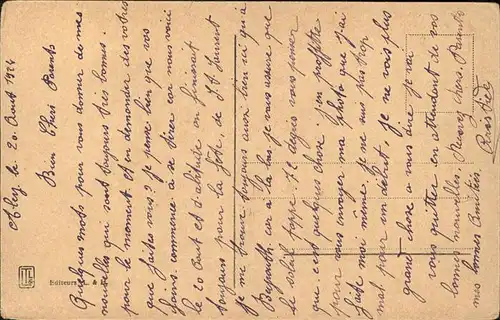 Aley le 20 Aout 1924
Bien Chers Parents
Quelques mots pour vous donner de mes
nouvelles qui sont toujours très bonnes.
pour le moment. et en demander des votres
que faites vous? Je pense bien que vos
foins commence à se tirer car nous voici
le 20 aout et d'abitude on finissait
toujours pour la fête de St Laurent
je me trouve toujours aussi bien ici qu'a
Beyrouth car a la bas je vous assure que
le soleil tappe. Et depuis vous penser
que c'est quelques chose. j'en proffite
pour vous envoyer ma photo que j'ai
faite moi même. je ne suis pas trop
mal pour un debut, je ne vois plus
grand chose a vous dire je vai
vous quitter en attendent de vos
bonnes nouvelles. Recevez chers Parents
mes bonnes Amitiés
Editeurs L. &